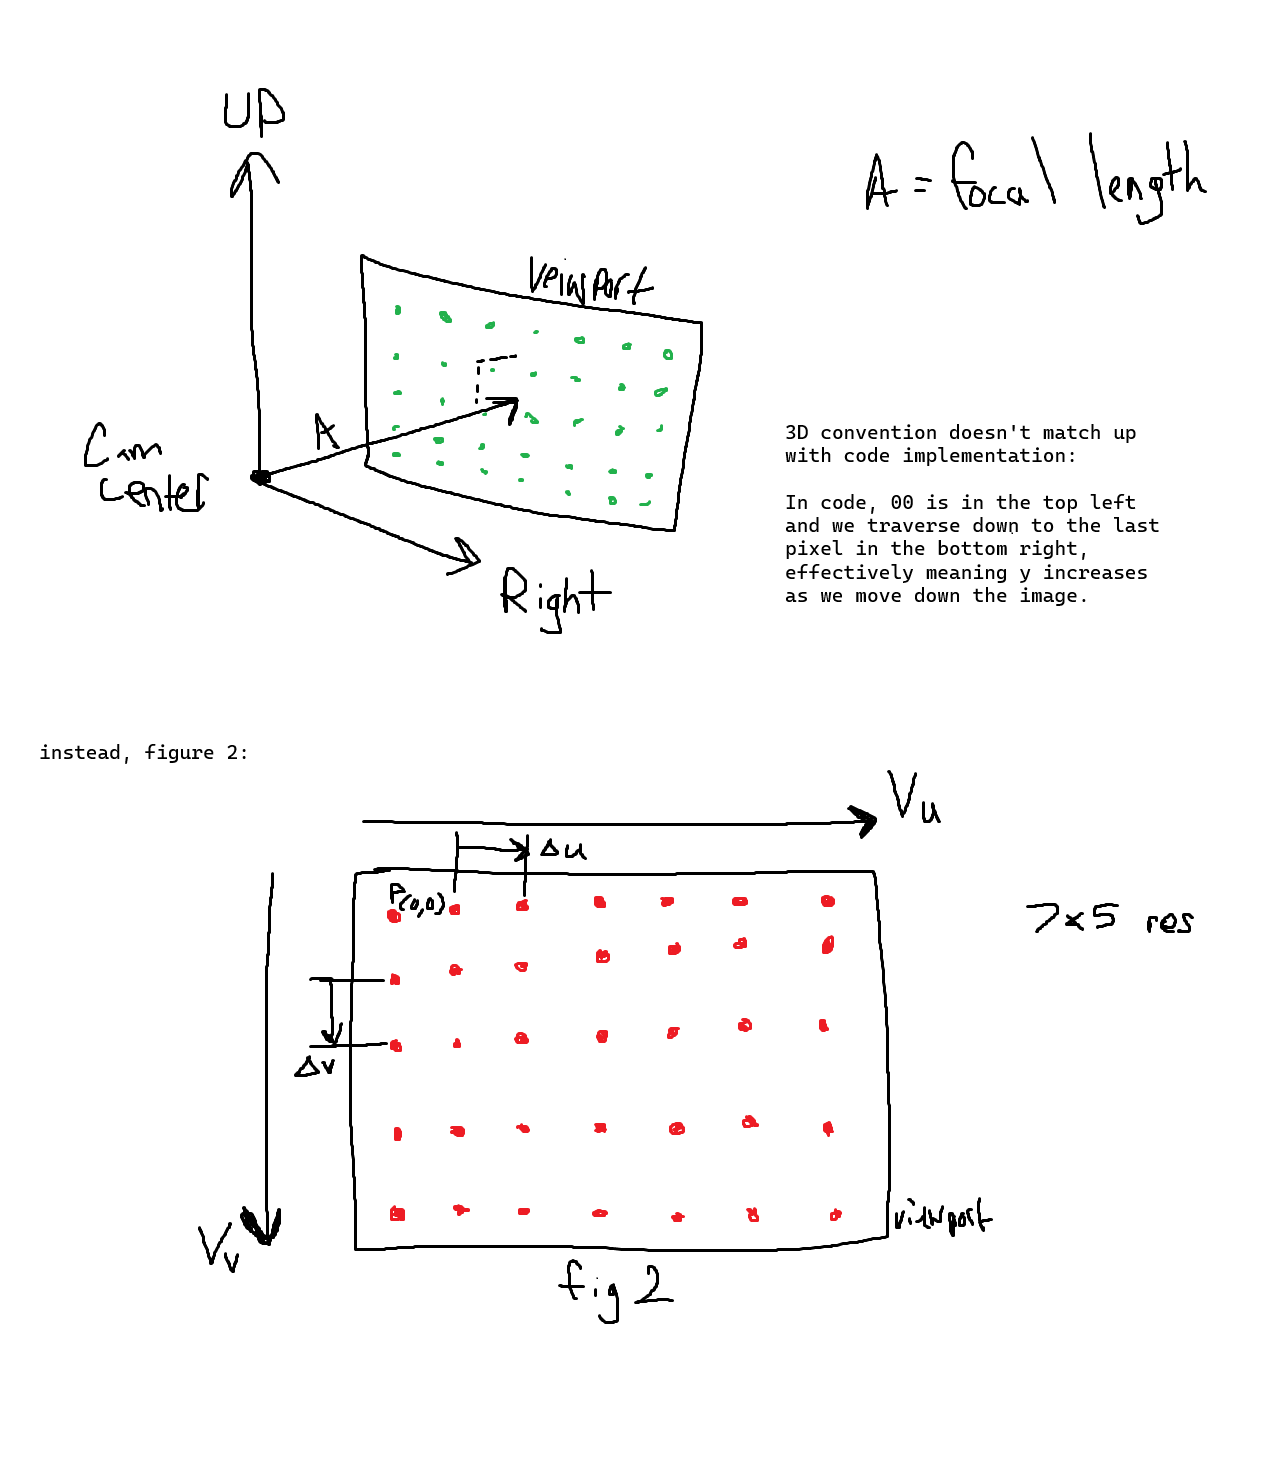 UP
A = focal length
Veiwport
A
Cam
center
Right
3D convention doesn't match up
with code implementation:
In code, 00 is in the top left
and we traverse down to the last
pixel in the bottom right,
effectively meaning y increases
as we move down the image.
instead, figure 2:
Vu
Δu
P(0,0)
7x5 res
Δv
Vv
viewport
fig 2